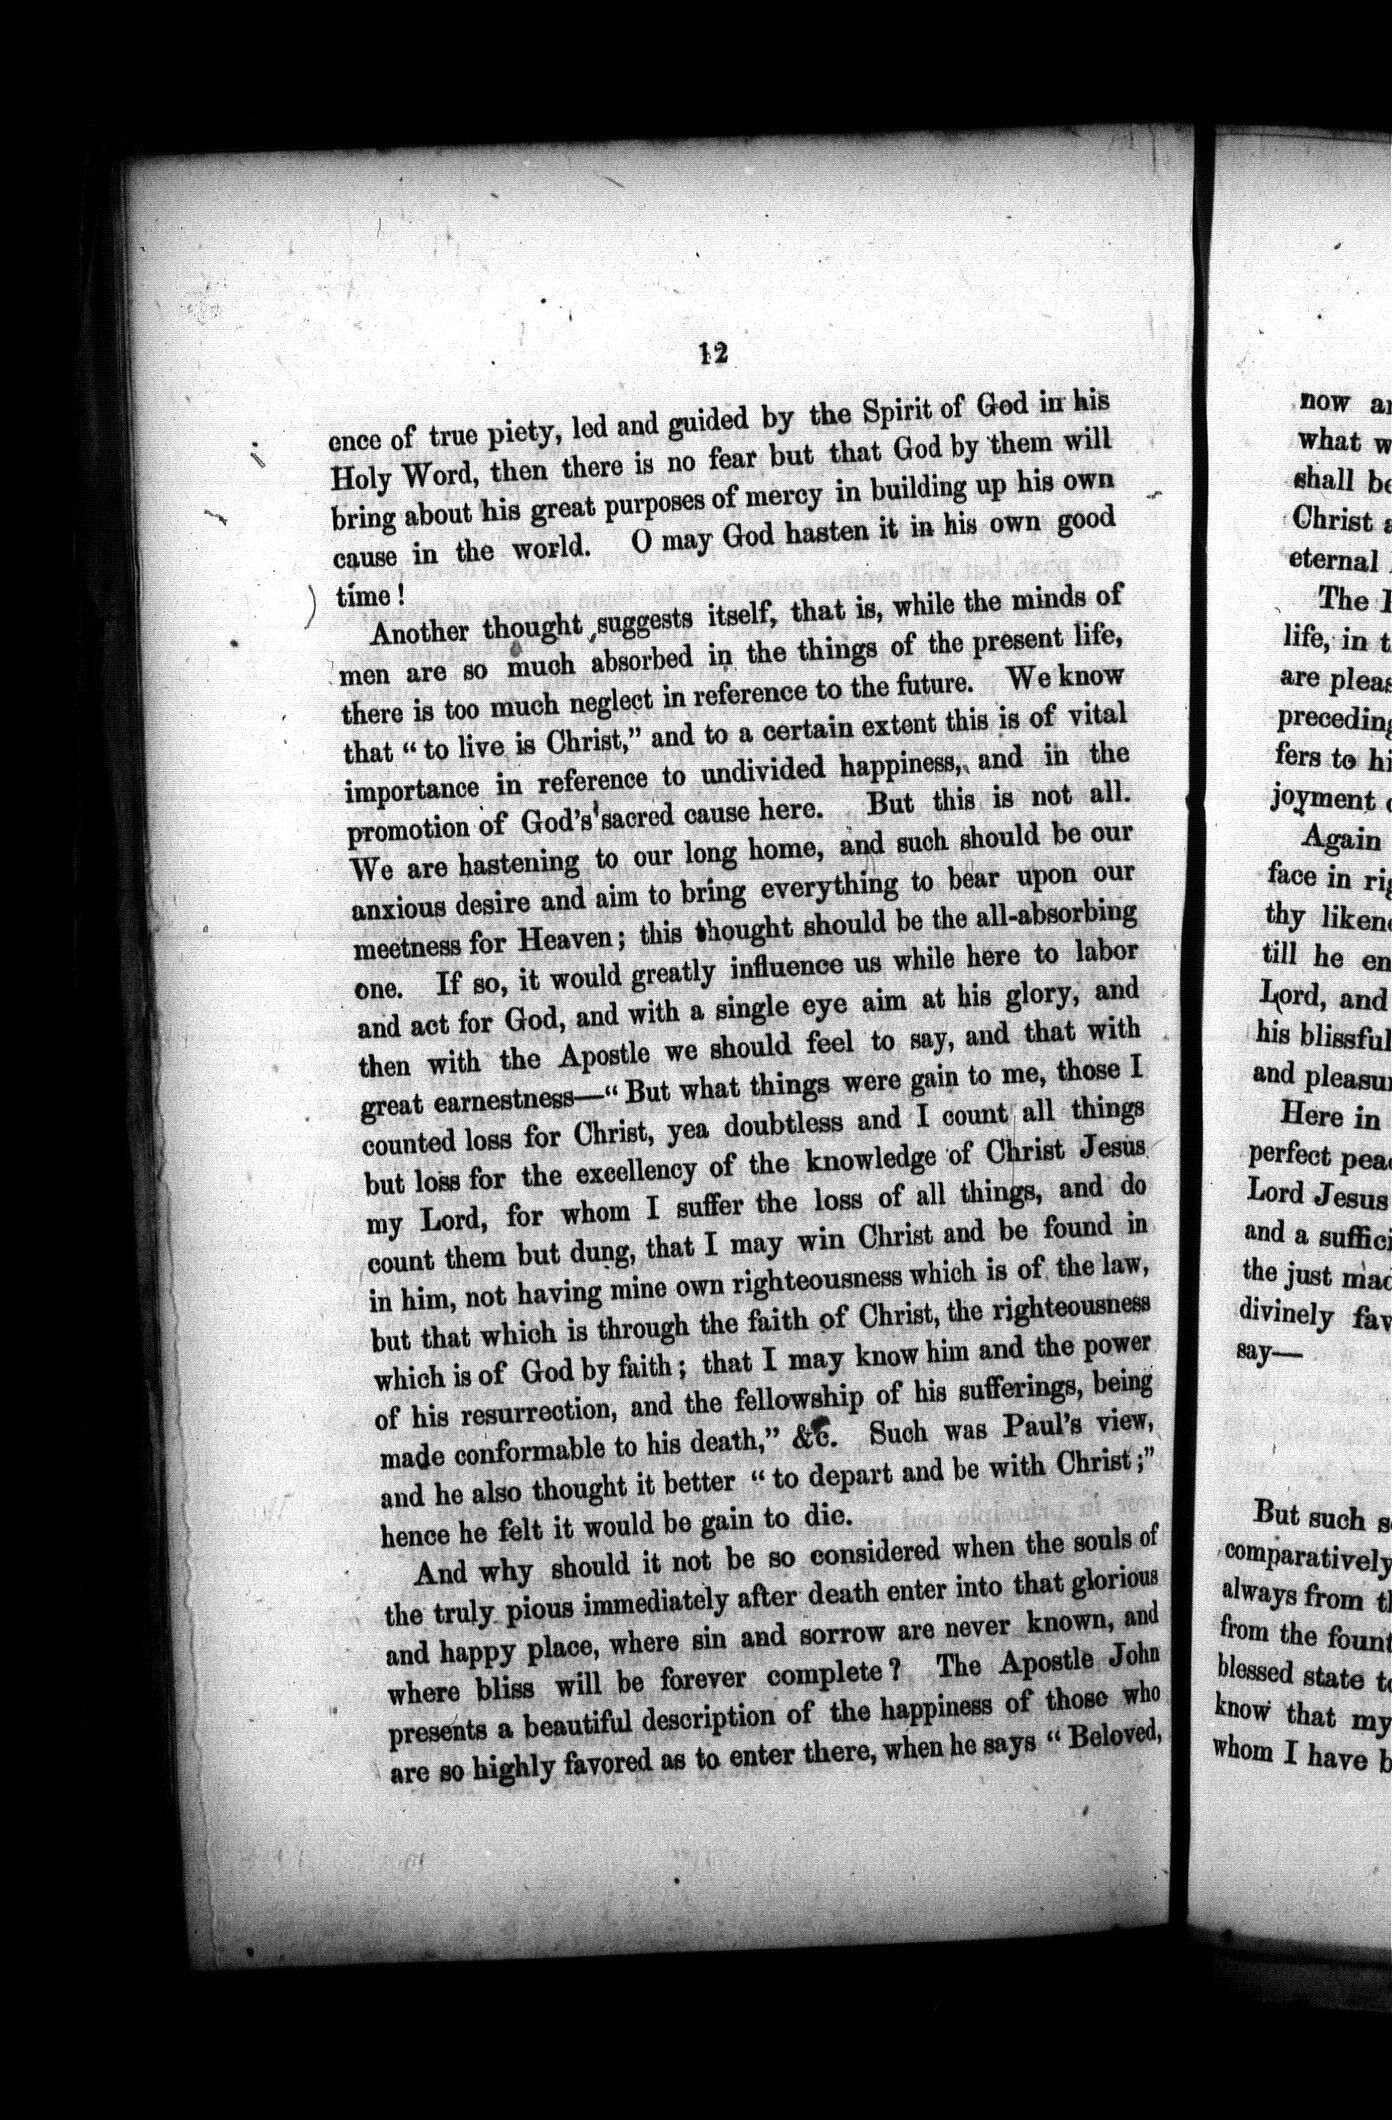 12
ence of true piety, led and guided by the Spirit of God in his
Holy Word, then there is no fear but that God by them will
bring about his great purposes of mercy in building up his own
cause in the world. O may God hasten it in his own good
time!
Another thought suggests itself, that is, while the minds of
men are so much absorbed in the things of the present life,
there is too much neglect in reference to the future. We know
that “to live is Christ,” and to a certain extent this is of vital
importance in reference to undivided happiness, and in the
promotion of God's sacred cause here. But this is not all.
We are hastening to our long home, and such should be our
anxious desire and aim to bring everything to bear upon our
meetness for Heaven; this thought should be the all-absorbing
one. If so, it would greatly influence us while here to labor
and act for God, and with a single eye aim at his glory, and
then with the Apostle we should feel to say, and that with
great earnestness—“But what things were gain to me, those I
counted loss for Christ, yea doubtless and I count all things
but loss for the excellency of the knowledge of Christ Jesus
my Lord, for whom I suffer the loss of all things, and do
count them but dung, that I may win Christ and be found in
in him, not having mine own righteousness which is of the law,
but that which is through the faith of Christ, the righteousness
which is of God by faith; that I may know him and the power
of his resurrection, and the fellowship of his sufferings, being
made conformable to his death,” &c. Such was Paul's view,
and he also thought it better “to depart and be with Christ;”
hence he felt it would be gain to die.
And why should it not be so considered when the souls of
the truly pious immediately after death enter into that glorious
and happy place, where sin and sorrow are never known, and
where bliss will be forever complete? The Apostle John
presents a beautiful description of the happiness of those who
are so highly favored as to enter there, when he says “Beloved,
now
what
shall
Christ
eternal
The
life, in
are
preceding
fers to
joyment
Again
face in
thy
till he
Lord, and
his blissful
and
Here in
perfect
Lord Jesus
and a
the just
divinely
say—
But such
comparatively
always from
from the
blessed state
know that my
whom I have